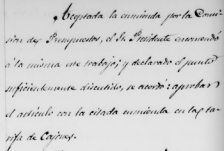 Aceptada la enmienda por la Comi-
sion de Presupuestos, el Sr. Presidente encomendó
á la misma este trabajo; y declarado el punto
suficientemente discutido, se acordó: aprobar
el artículo con la citada enmienda en la ta-
rifa de Cajones.